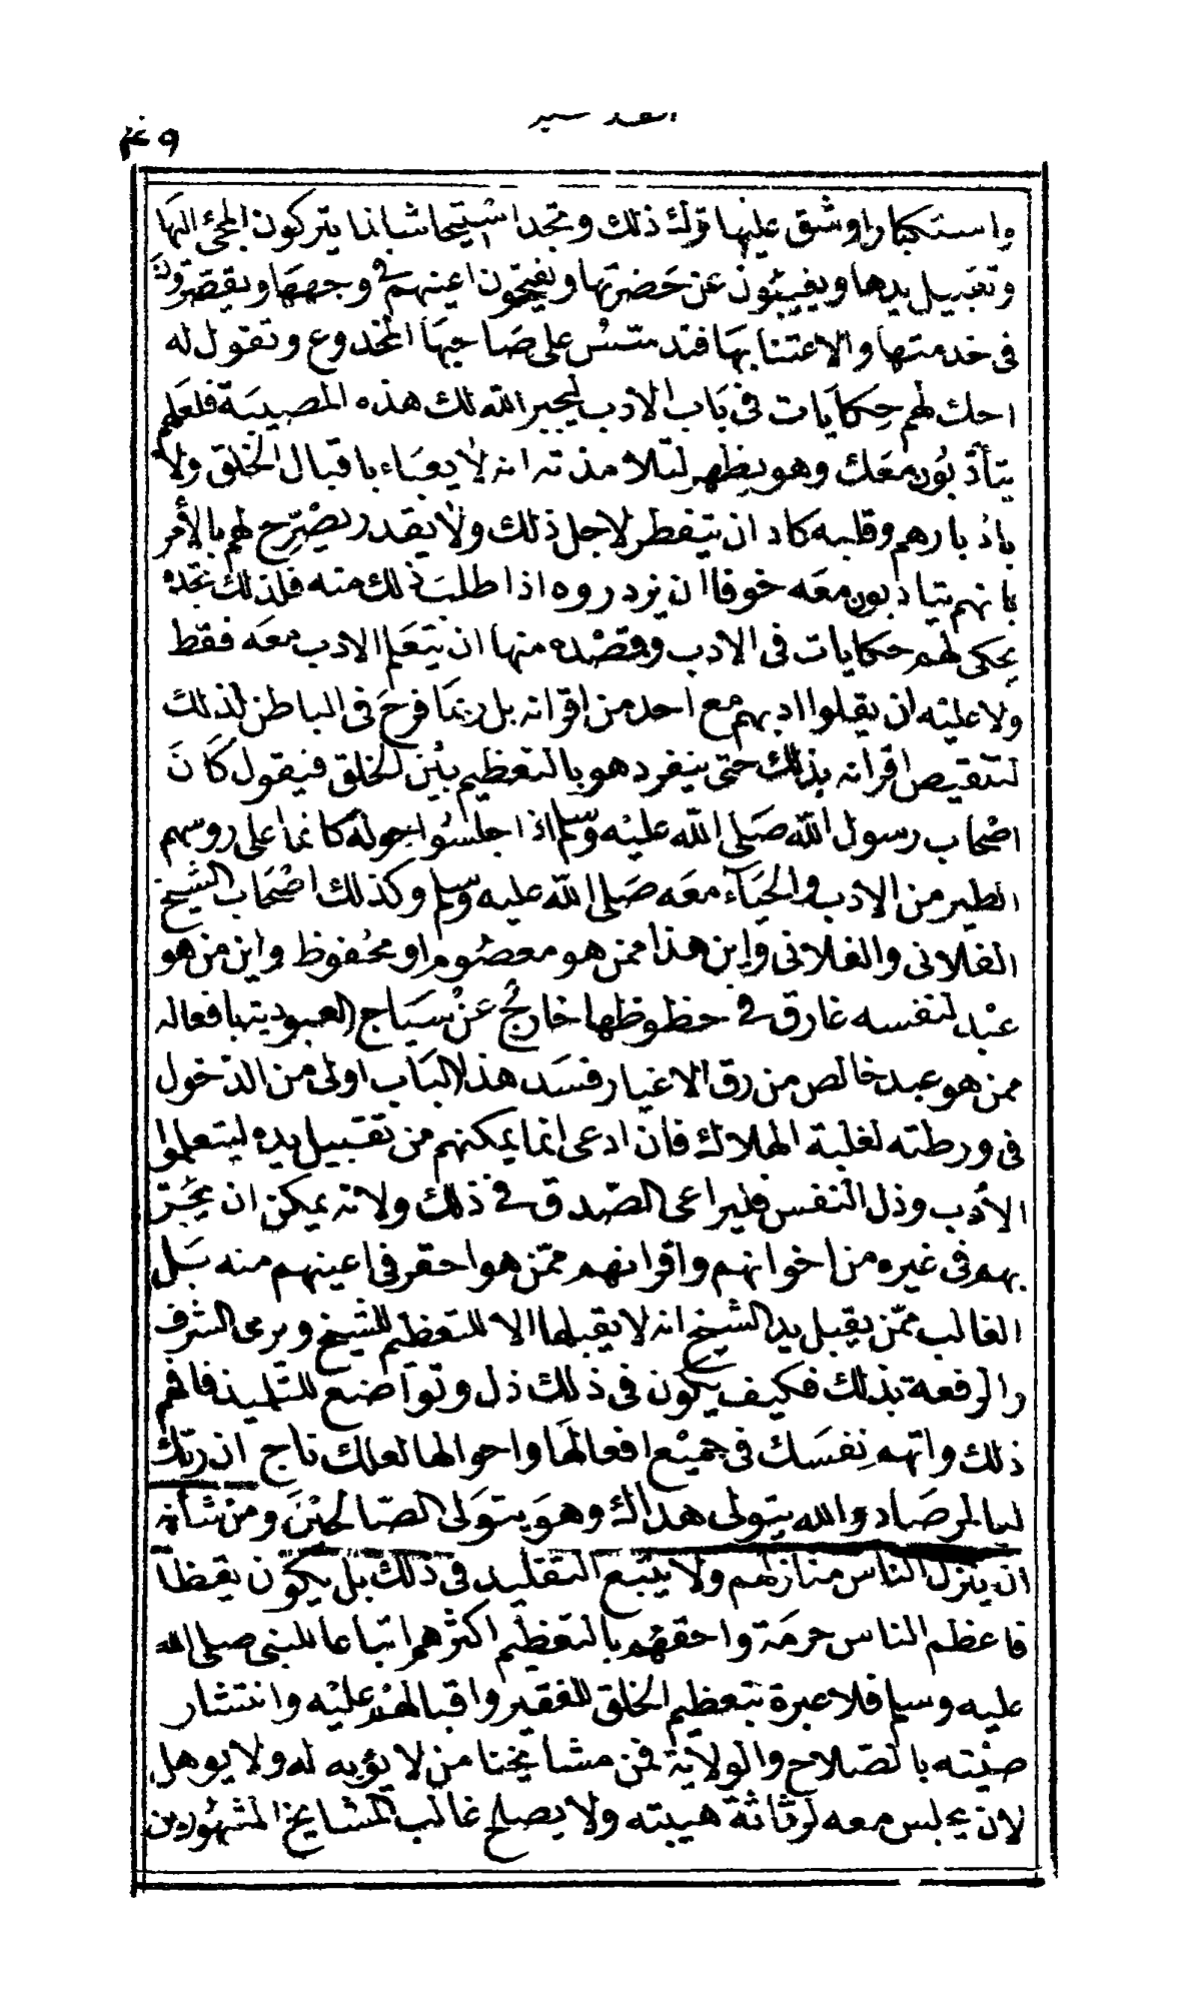 ٤٩
واستكبارا وشق عليها ترك ذلك وتجد استيحاشا انما يتركون المجئ اليها
وتقبيل يدها ويغيبون عن حضرتها ويفتحون اعينهم في وجهها ويقصرون
في خدمتها والاعتنا بها فقد على صاحبها المخدوع وتقول له
احك لهم حكايات في باب الادب ليجبر الله لك هذه المصيبة فلعلهم
يتأدبون معك وهو يظهر لتلامذته انه لا يعباء باقبال الخلق ولا
بادبارهم وقلبه كاد ان يتفطر لاجل ذلك ولا يقدر يصرح لهم بالأمر
بانهم يتادبون معه خوفا ان يزدروه اذا طلب ذلك منه فلذلك تجده
يحكي لهم حكايات في الادب وقصده منها ان يتعلم الادب معه فقط
ولا عليه ان يقلوا ادبهم مع احد من اقرانه بل ربما فرح في الباطن لذلك
لتنقيص اقرانه بذلك حتى ينفرد هو بالتعظيم بين الخلق فيقول كان
اصحاب رسول الله صلى الله عليه وسلم اذا جلسوا حوله كانما على روسهم
الطير من الادب والحياء معه صلى الله عليه وسلم وكذلك اصحاب الشيخ
الفلاني والفلاني واين هذا ممن هو معصوم او محفوظ واين من هو
عبد لنفسه غارق في حظوظها خارج عن سياج العبودية بافعاله
ممن هو عبد خالص من رق الاغيار فسد هذا الباب اولى من الدخول
في ورطته لغلبة الهلاك فان ادعى انما يمكنهم من تقبيل يده ليتعلموا
الأدب وذل النفس فليراعى الصدق في ذلك ولانه يمكن ان
بهم في غيره من اخوانهم واقرانهم ممن هو احقر في اعينهم منه بل
الغالب ممن يقبل يد الشيخ انه لا يقبلها الا للتعظيم للشيخ ويرى الشرف
والرفعة بذلك فكيف يكون في ذلك ذل وتواضع للتلميذ فافهم
ذلك واتهم نفسك في جميع افعالها واحوالها لعلك ناج ان ربك
لبالمرصاد والله يتولى هداك وهو يتولى الصالحين ومن شأنه
ان ينزل الناس منازلهم ولا يتبع التقليد في ذلك بل يكون يقظا
فاعظم الناس حرمة واحقهم بالتعظيم اكثرهم اتباعا للنبي صلى الله
عليه وسلم فلا عبرة بتعظيم الخلق للفقير واقبالهم عليه وانتشار
صيته بالصلاح والولاية فمن مشايخنا من لا يؤبه له ولا يوهل
لان يجلس معه لرثاثة هيبته ولا يصلح غالب المشايخ المشهورين